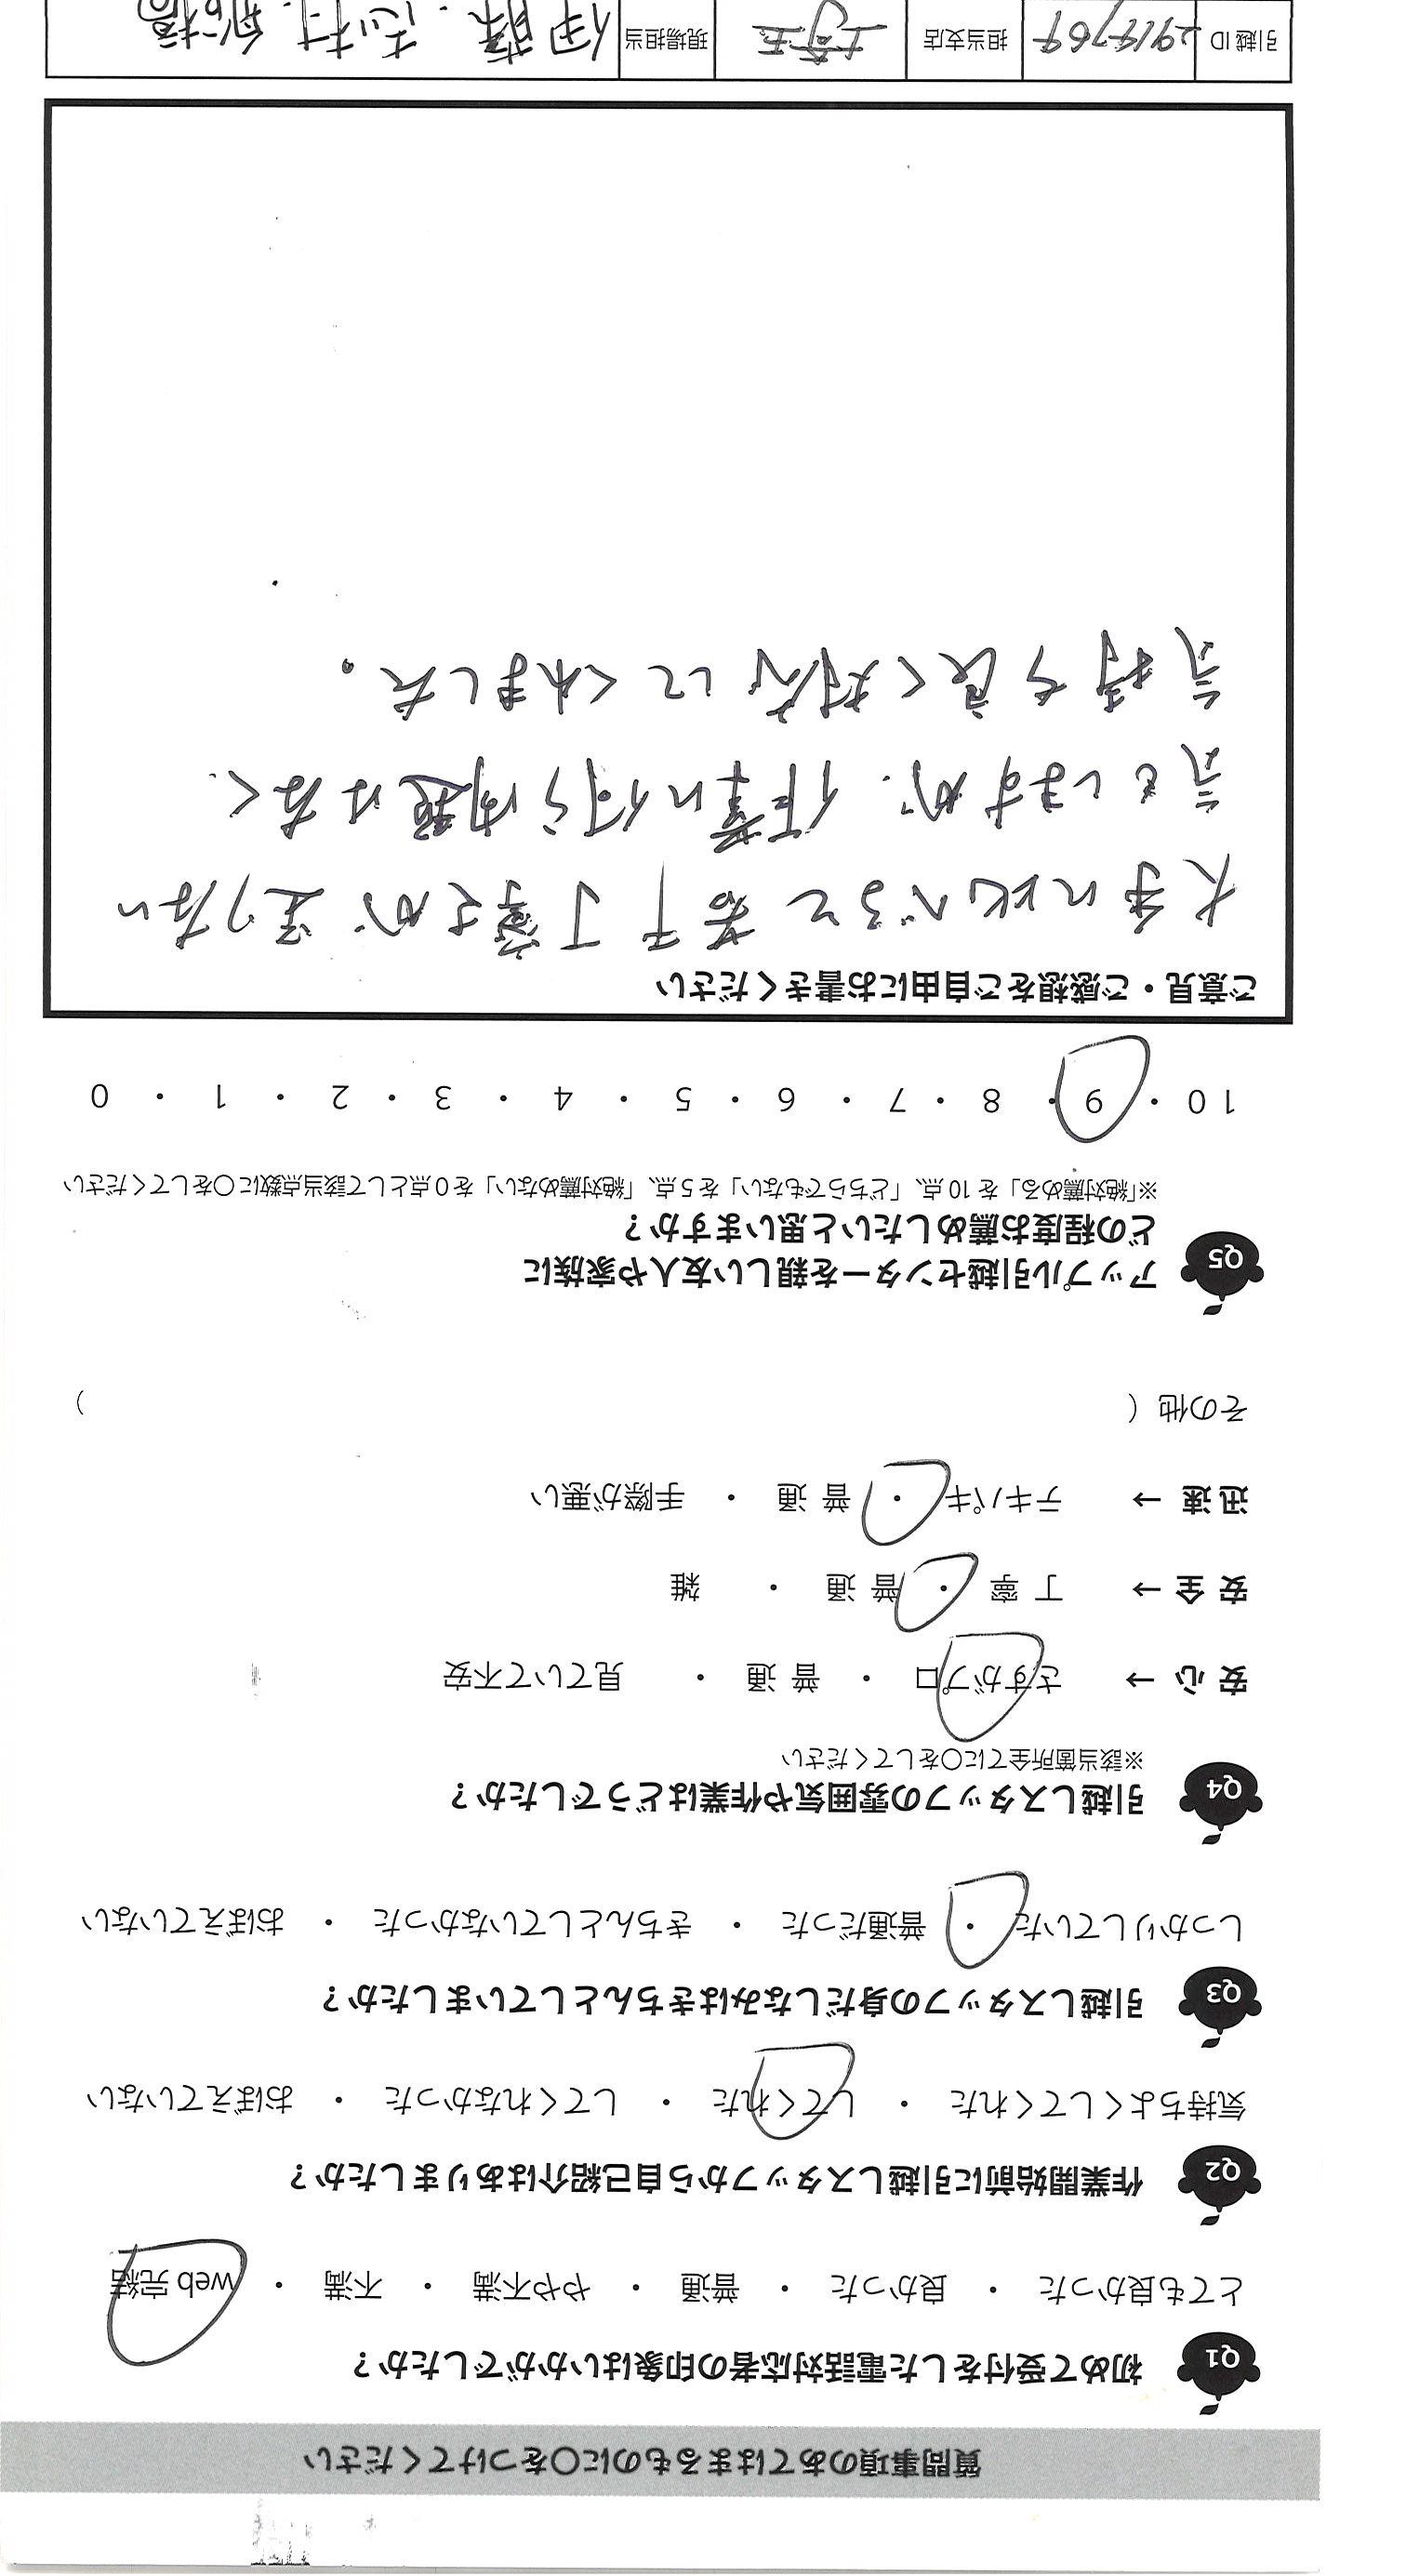 質問事項のあてはまるものに○をつけてください
Q1 初めて受付をした電話対応者の印象はいかがでしたか？
とても良かった ・ 良かった ・ 普通 ・ やや不満 ・ 不満 ・ web 完結
Q2 作業開始前に引越しスタッフから自己紹介はありましたか？
気持ちよくしてくれた ・ してくれた ・ してくれなかった ・ おぼえていない
Q3 引越しスタッフの身だしなみはきちんとしていましたか？
しっかりしていた ・ 普通だった ・ きちんとしていなかった ・ おぼえていない
Q4 引越しスタッフの雰囲気や作業はどうでしたか？
※該当箇所全てに○をしてください
安 心 → さすがプロ ・ 普 通 ・ 見ていて不安
安 全 → 丁 寧 ・ 普 通 ・ 雑
迅 速 → テキパキ ・ 普 通 ・ 手際が悪い
その他（ ）
Q5 アップル引越センターを親しい友人や家族に
どの程度お薦めしたいと思いますか？
※「絶対薦める」を 10 点、「どちらでもない」を 5 点、「絶対薦めない」を 0 点として該当点数に○をしてください
10 ・ 9 ・ 8 ・ 7 ・ 6 ・ 5 ・ 4 ・ 3 ・ 2 ・ 1 ・ 0
ご意見・ご感想をご自由にお書きください
大手に比べると若干丁寧さが足りない
気もしますが、作業に何ら問題はなく、
気持ち良く対応してくれました。
引越 ID 担当支店 埼玉 現場担当 伊藤.志村.船橋